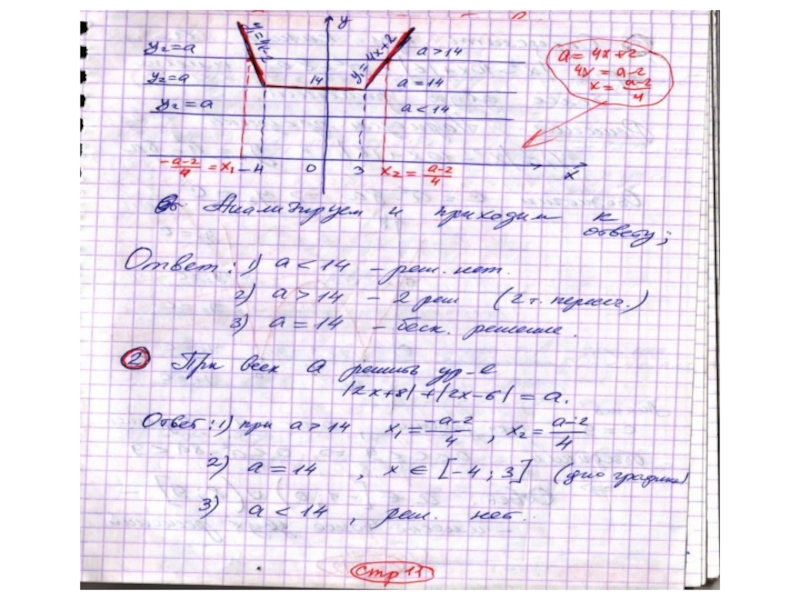 y
y₂=a
y₂=a
y₂=a
y=-4x-2
y₁=4x+2
a>14
a=14
a<14
14
a=4x+2
4x=a-2
x=(a-2)/4
(-a-2)/4 =x₁
-4
0
3
x₂=(a-2)/4
x
Анализируем и приходим к
ответу;
Ответ: 1) a<14 – реш. нет.
2) a>14 – 2 реш (2 т. пересеч.)
3) a=14 – беск. решение.
2 При всех a решить ур-е
|2x+8|+|2x-6|=a.
Ответ: 1) при a>14 x₁=(-a-2)/4, x₂=(a-2)/4
2) a=14, x∈[-4;3] (дно графика)
3) a<14, реш. нет.
стр 11